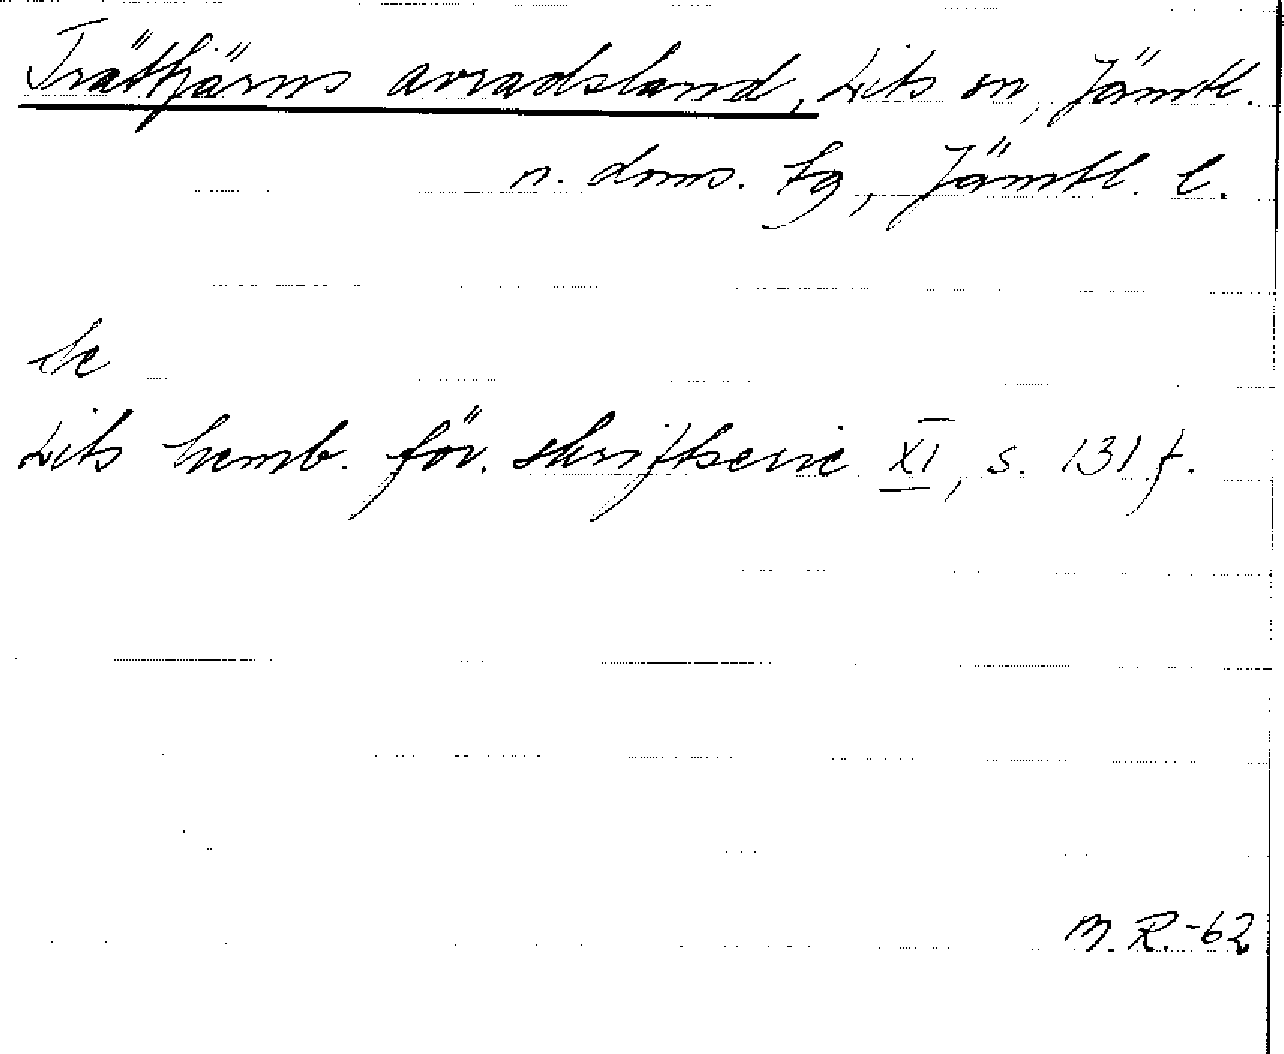 Trättjärns avradsland, Lits sn, Jämtl.
n. doms. tg, Jämtl. l.
se
Lits hemb. för. skriftserie XI, s. 131 f.
M. R. -62